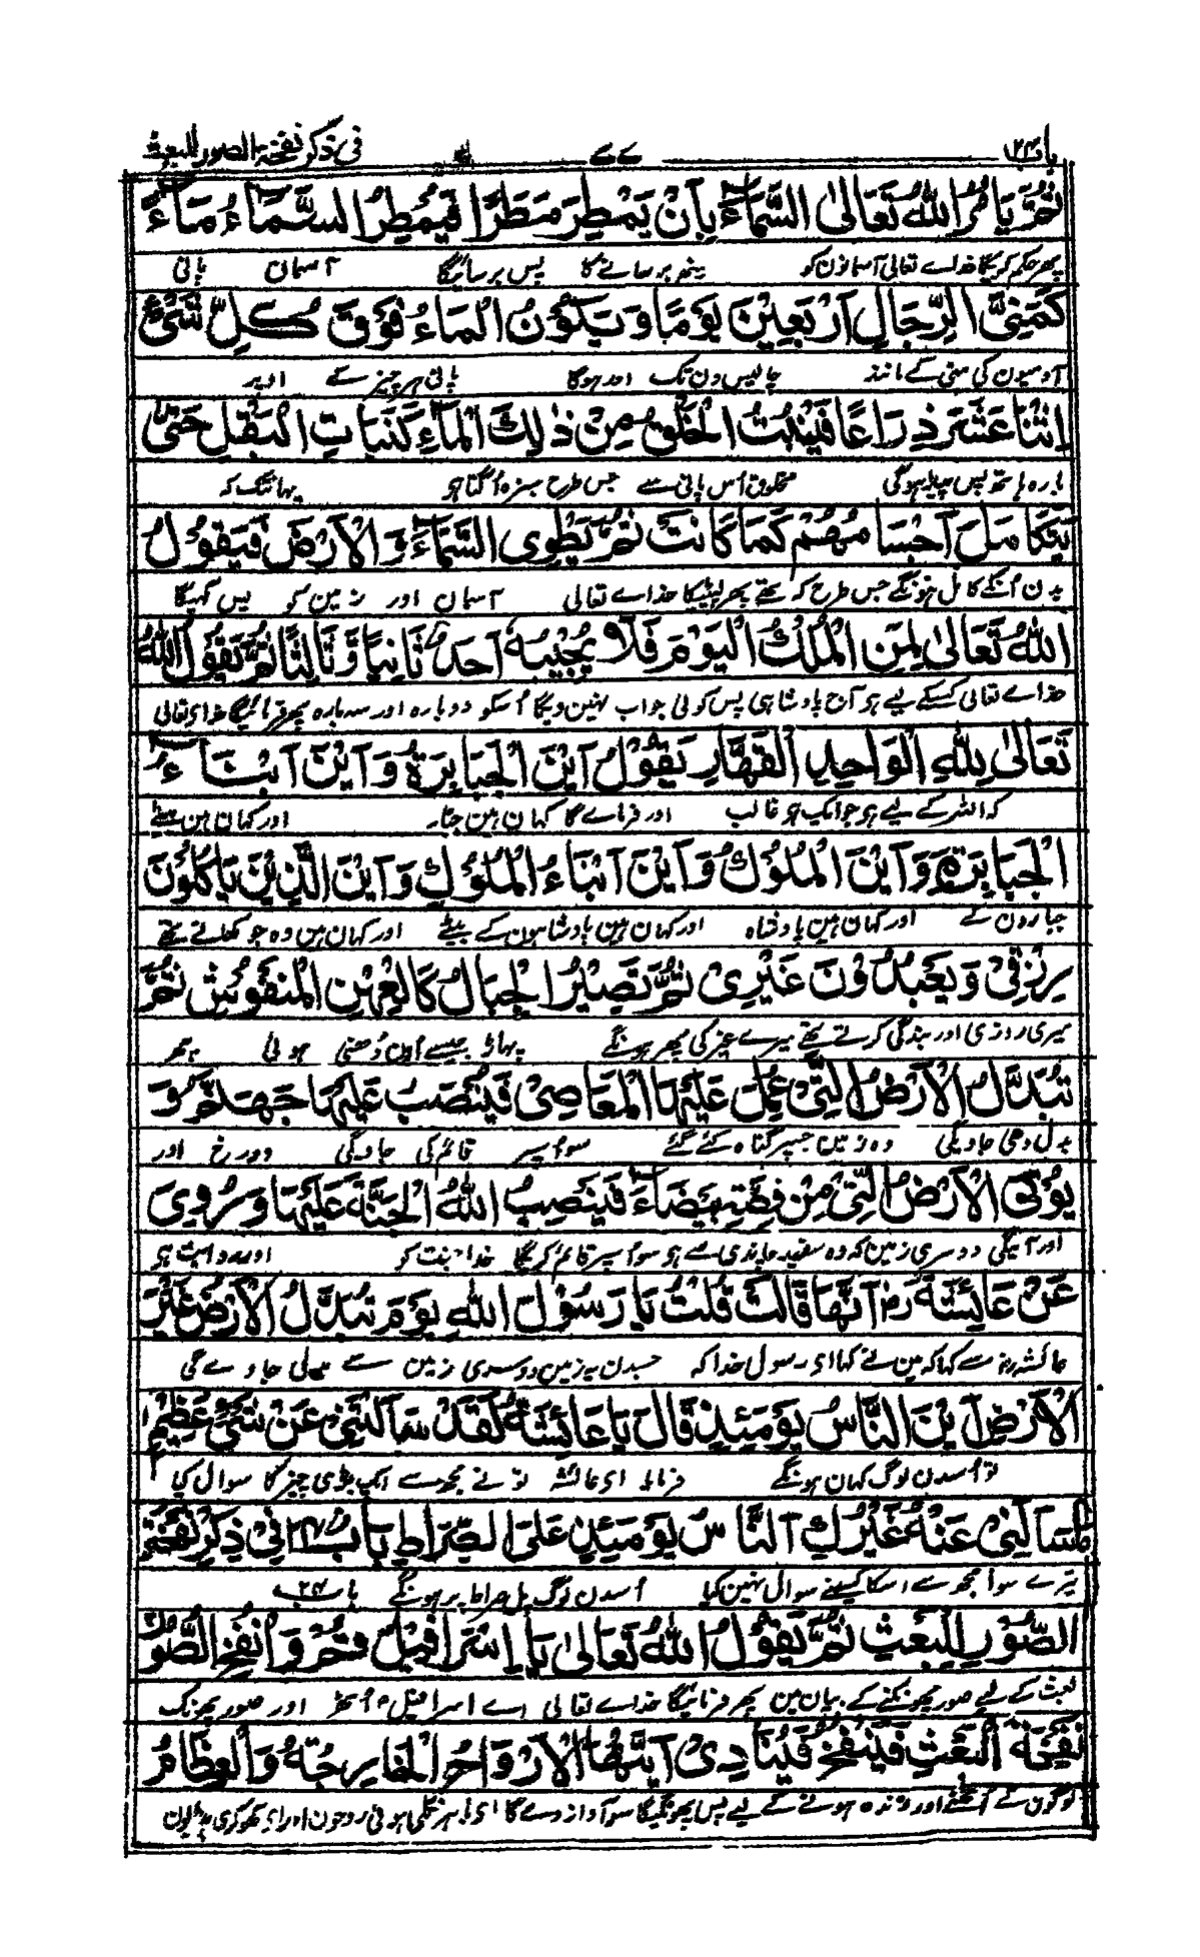 باب ۲۴ ۷۷ فی ذکر نفخة الصور للبعث
ثُمَّ يَامُرُ اللهُ تَعَالىٰ السَّمَآءَ بِاَنْ يَمْطِرَ مَطَرًا فَيَمْطِرُ السَّمَآءُ مَآءً
پھر حکم کریگا خداے تعالی آسمانون کو مینھ برسانے کا پس برسائیگا آسمان پانی
كَمَنِيِّ الرِّجَالِ اَرْبَعِيْنَ يَوْمًا وَيَكُوْنُ الْمَاءُ فَوْقَ كُلِّ شَيْءٍ
آدمیون کی منی کے مانند چالیس دن تک اور ہوگا پانی ہر چیز کے اوپر
اِثْنَا عَشَرَ ذِرَاعًا فَيَنْبُتُ الْخَلْقُ مِنْ ذٰلِكَ الْمَآءِ كَنَبَاتِ الْبَقْلِ حَتّٰى
بارہ ہاتھ پس پیدا ہوگی مخلوق اُس پانی سے جس طرح سبزہ اُگتا ہو یہانتک کہ
يَتَكَامَلَ اَجْسَامُهُمْ كَمَا كَانَتْ ثُمَّ يَطْوِى السَّمَآءَ وَالْاَرْضَ فَيَقُوْلُ
بدن اُنکے کامل ہونگے جس طرح کہ تھے پھر لپیٹیگا خداے تعالی آسمان اور زمین کو پس کہیگا
اللهُ تَعَالىٰ لِمَنِ الْمُلْكُ الْيَوْمَ فَلَا يُجِيْبُهٗ اَحَدٌ ثَانِيًا وَّثَالِثًا ثُمَّ يَقُوْلُ اللهُ
خداے تعالی کسکے لیے ہو آج بادشاہی پس کوئی جواب نہین دیگا اُسکو دوبارہ اور سہ بارہ پھر فرمائیگا خداے تعالی
تَعَالىٰ لِلهِ الْوَاحِدِ الْقَهَّارِ يَقُوْلُ اَيْنَ الْجَبَابِرَةُ وَاَيْنَ اَبْنَآءُ
کہ اللہ کے لیے ہو جو ایک ہو غالب اور فرماے گا کہان ہین جبار اور کہان ہین بیٹے
الْجَبَابِرَةِ وَاَيْنَ الْمُلُوْكُ وَاَيْنَ اَبْنَاءُ الْمُلُوْكِ وَاَيْنَ الَّذِيْنَ يَاكُلُوْنَ
جبارون کے اور کہان ہین بادشاہ اور کہان ہین بادشاہون کے بیٹے اور کہان ہین وہ جو کھاتے تھے
رِزْقِىْ وَيَعْبُدُوْنَ غَيْرِىْ ثُمَّ تَصِيْرُ الْجِبَالُ كَالْعِهْنِ الْمَنْفُوْشِ ثُمَّ
میری روزی اور بندگی کرتے تھے میرے غیر کی پھر ہونگے پہاڑ جیسے اون دُھنی ہوئی پھر
تُبَدَّلُ الْاَرْضُ الَّتِىْ عُمِلَ عَلَيْهَا الْمَعَاصِىْ فَيُنْصَبُ عَلَيْهَا جَهَنَّمُ وَ
بدل دی جاویگی وہ زمین جسپر گناہ کئے گئے سو اُسپر قائم کی جاویگی دوزخ اور
يُؤْتىٰ الْاَرْضُ الَّتِىْ مِنْ فِضَّةٍ بَيْضَآءَ فَيَنْصِبُ اللهُ الْجَنَّةَ عَلَيْهَا وَرُوِىَ
اور آئیگی دوسری زمین کہ وہ سفید چاندی سے ہو سو اُسپر قائم کریگا خدا جنت کو اور روایت ہو
عَنْ عَائِشَةَ رض اَنَّهَا قَالَتْ قُلْتُ يَا رَسُوْلَ اللهِ يَوْمَ تُبَدَّلُ الْاَرْضُ غَيْرَ
عائشہ رض سے کہا کہ مین نے کہا اے رسول خدا کہ جسدن یہ زمین دوسری زمین سے بدلی جاوے گی
الْاَرْضِ اَيْنَ النَّاسُ يَوْمَئِذٍ قَالَ يَا عَائِشَةُ لَقَدْ سَاَلْتَنِىْ عَنْ شَىْءٍ عَظِيْمٍ
تو اُسدن لوگ کہان ہونگے فرمایا اے عائشہ تو نے مجھ سے ایک بڑی چیز کا سوال کیا
مَا سَاَلَنِىْ عَنْهُ غَيْرُكِ اَلنَّاسُ يَوْمَئِذٍ عَلَى الصِّرَاطِ بَابُ ۲۴ فِىْ ذِكْرِ نَفْخَةِ
تیرے سوا مجھ سے اسکا کسینے سوال نہین کیا اُسدن لوگ پل صراط پر ہونگے باب ۲۴
الصُّوْرِ لِلْبَعْثِ ثُمَّ يَقُوْلُ اللهُ تَعَالىٰ يَا اِسْرَافِيْلُ قُمْ وَانْفُخِ الصُّوْرَ
بعث کے لیے صور پھونکنے کے بیان مین پھر فرمائیگا خداے تعالی اے اسرافیل اُٹھ اور صور پھونک
نَفْخَةَ الْبَعْثِ فَيَنْفُخُ فَيُنَادِىْ اَيَّتُهَا الْاَرْوَاحُ الْخَارِجَةُ وَالْعِظَامُ
لوگون کے اُٹھنے اور زندہ ہونے کے لیے پس پھونکیگا سو آواز دے گا اے باہر نکلی ہوئی روحون اور اے